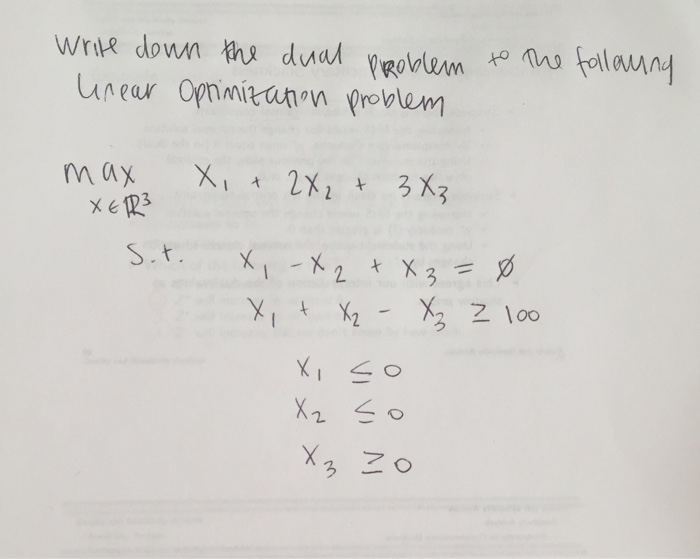 Write down the dual problem to the following
linear optimization problem
max x₁ + 2x₂ + 3x₃
x∈ℝ³
s.t. x₁ - x₂ + x₃ = 0
x₁ + x₂ - x₃ ≥ 100
x₁ ≤ 0
x₂ ≤ 0
x₃ ≥ 0